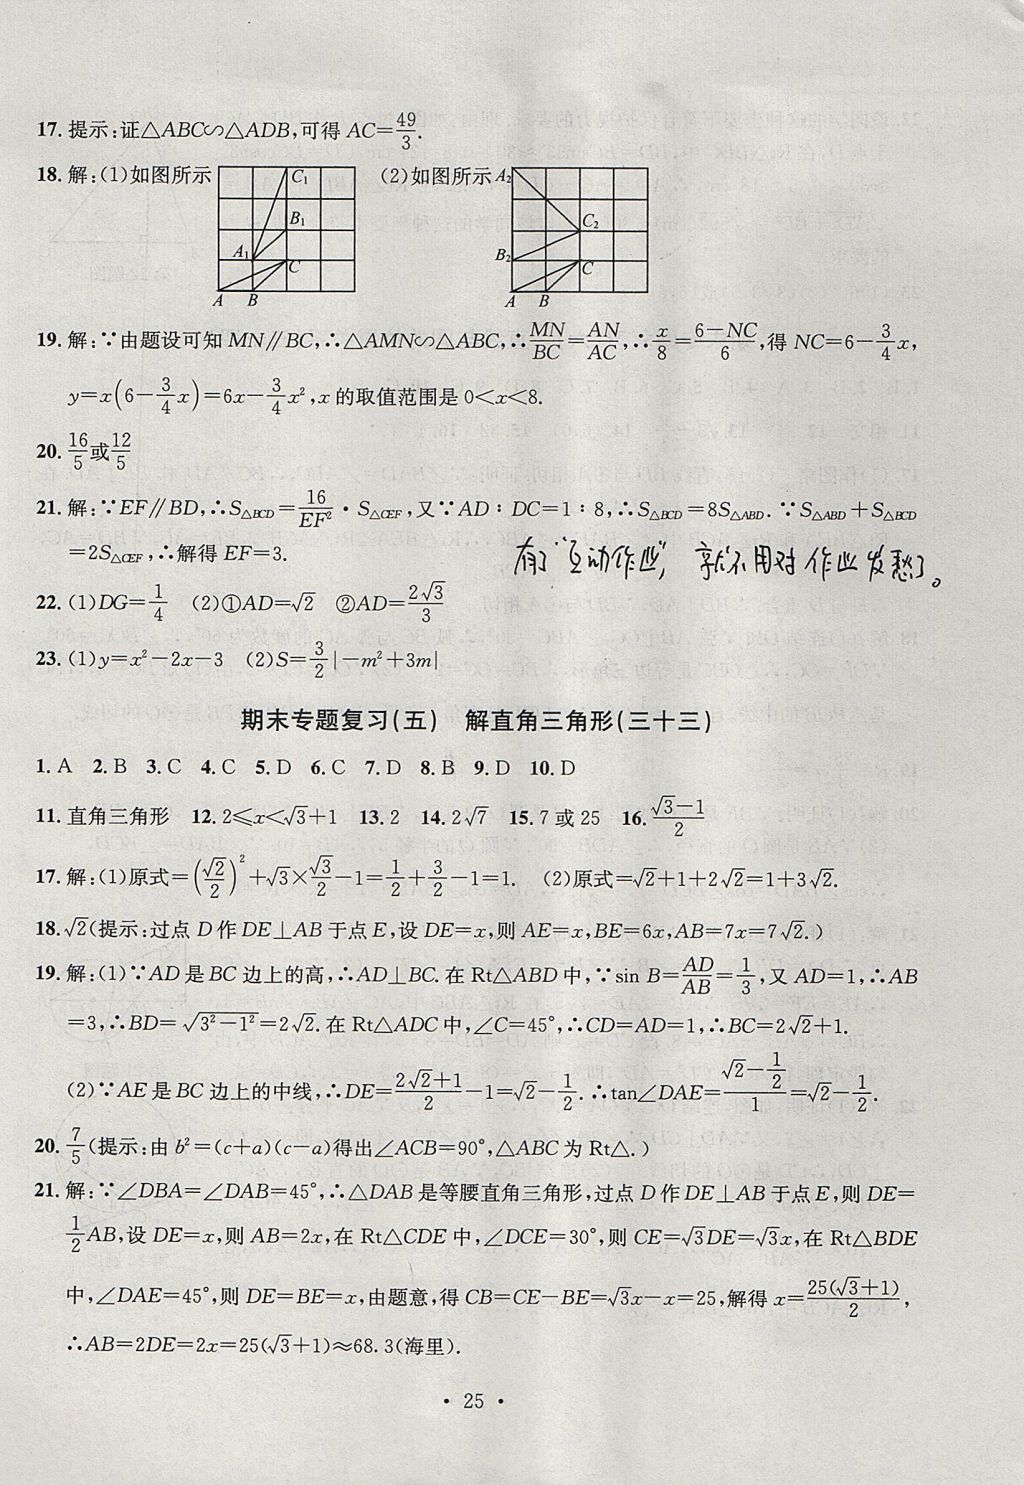 17.提示:证△ABC∽△ADB,可得 AC=49/3.
18.解:(1)如图所示 (2)如图所示
C₁ B₁ A₁ C A B
A₂ C₂ B₂ C A B
19.解:∵由题设可知 MN∥BC,∴△AMN∽△ABC,∴MN/BC=AN/AC,∴x/8=(6−NC)/6,得 NC=6−3/4x,
y=x(6−3/4x)=6x−3/4x²,x 的取值范围是 0<x<8.
20.16/5或12/5
21.解:∵EF∥BD,∴S△BCD=16/EF²·S△CEF,又∵AD∶DC=1∶8,∴S△BCD=8S△ABD.∵S△ABD+S△BCD
=2S△CEF,∴解得 EF=3.
有了“互动作业”,就不用对作业发愁了。
22.(1)DG=1/4 (2)①AD=√2 ②AD=2√3/3
23.(1)y=x²−2x−3 (2)S=3/2|−m²+3m|
期末专题复习(五) 解直角三角形(三十三)
1.A 2.B 3.C 4.C 5.D 6.C 7.D 8.B 9.D 10.D
11.直角三角形 12.2≤x<√3+1 13.2 14.2√7 15.7 或 25 16.(√3−1)/2
17.解:(1)原式=(√2/2)²+√3×√3/2−1=1/2+3/2−1=1. (2)原式=√2+1+2√2=1+3√2.
18.√2(提示:过点 D 作 DE⊥AB 于点 E,设 DE=x,则 AE=x,BE=6x,AB=7x=7√2.)
19.解:(1)∵AD 是 BC 边上的高,∴AD⊥BC.在 Rt△ABD 中,∵sin B=AD/AB=1/3,又 AD=1,∴AB
=3,∴BD=√(3²−1²)=2√2.在 Rt△ADC 中,∠C=45°,∴CD=AD=1,∴BC=2√2+1.
(2)∵AE 是 BC 边上的中线,∴DE=(2√2+1)/2−1=√2−1/2.∴tan∠DAE=(√2−1/2)/1=√2−1/2.
20.7/5(提示:由 b²=(c+a)(c−a)得出∠ACB=90°,△ABC 为 Rt△.)
21.解:∵∠DBA=∠DAB=45°,∴△DAB 是等腰直角三角形,过点 D 作 DE⊥AB 于点 E,则 DE=
1/2AB,设 DE=x,则 AB=2x,在 Rt△CDE 中,∠DCE=30°,则 CE=√3DE=√3x,在 Rt△BDE
中,∠DAE=45°,则 DE=BE=x,由题意,得 CB=CE−BE=√3x−x=25,解得 x=25(√3+1)/2,
∴AB=2DE=2x=25(√3+1)≈68.3(海里).
· 25 ·